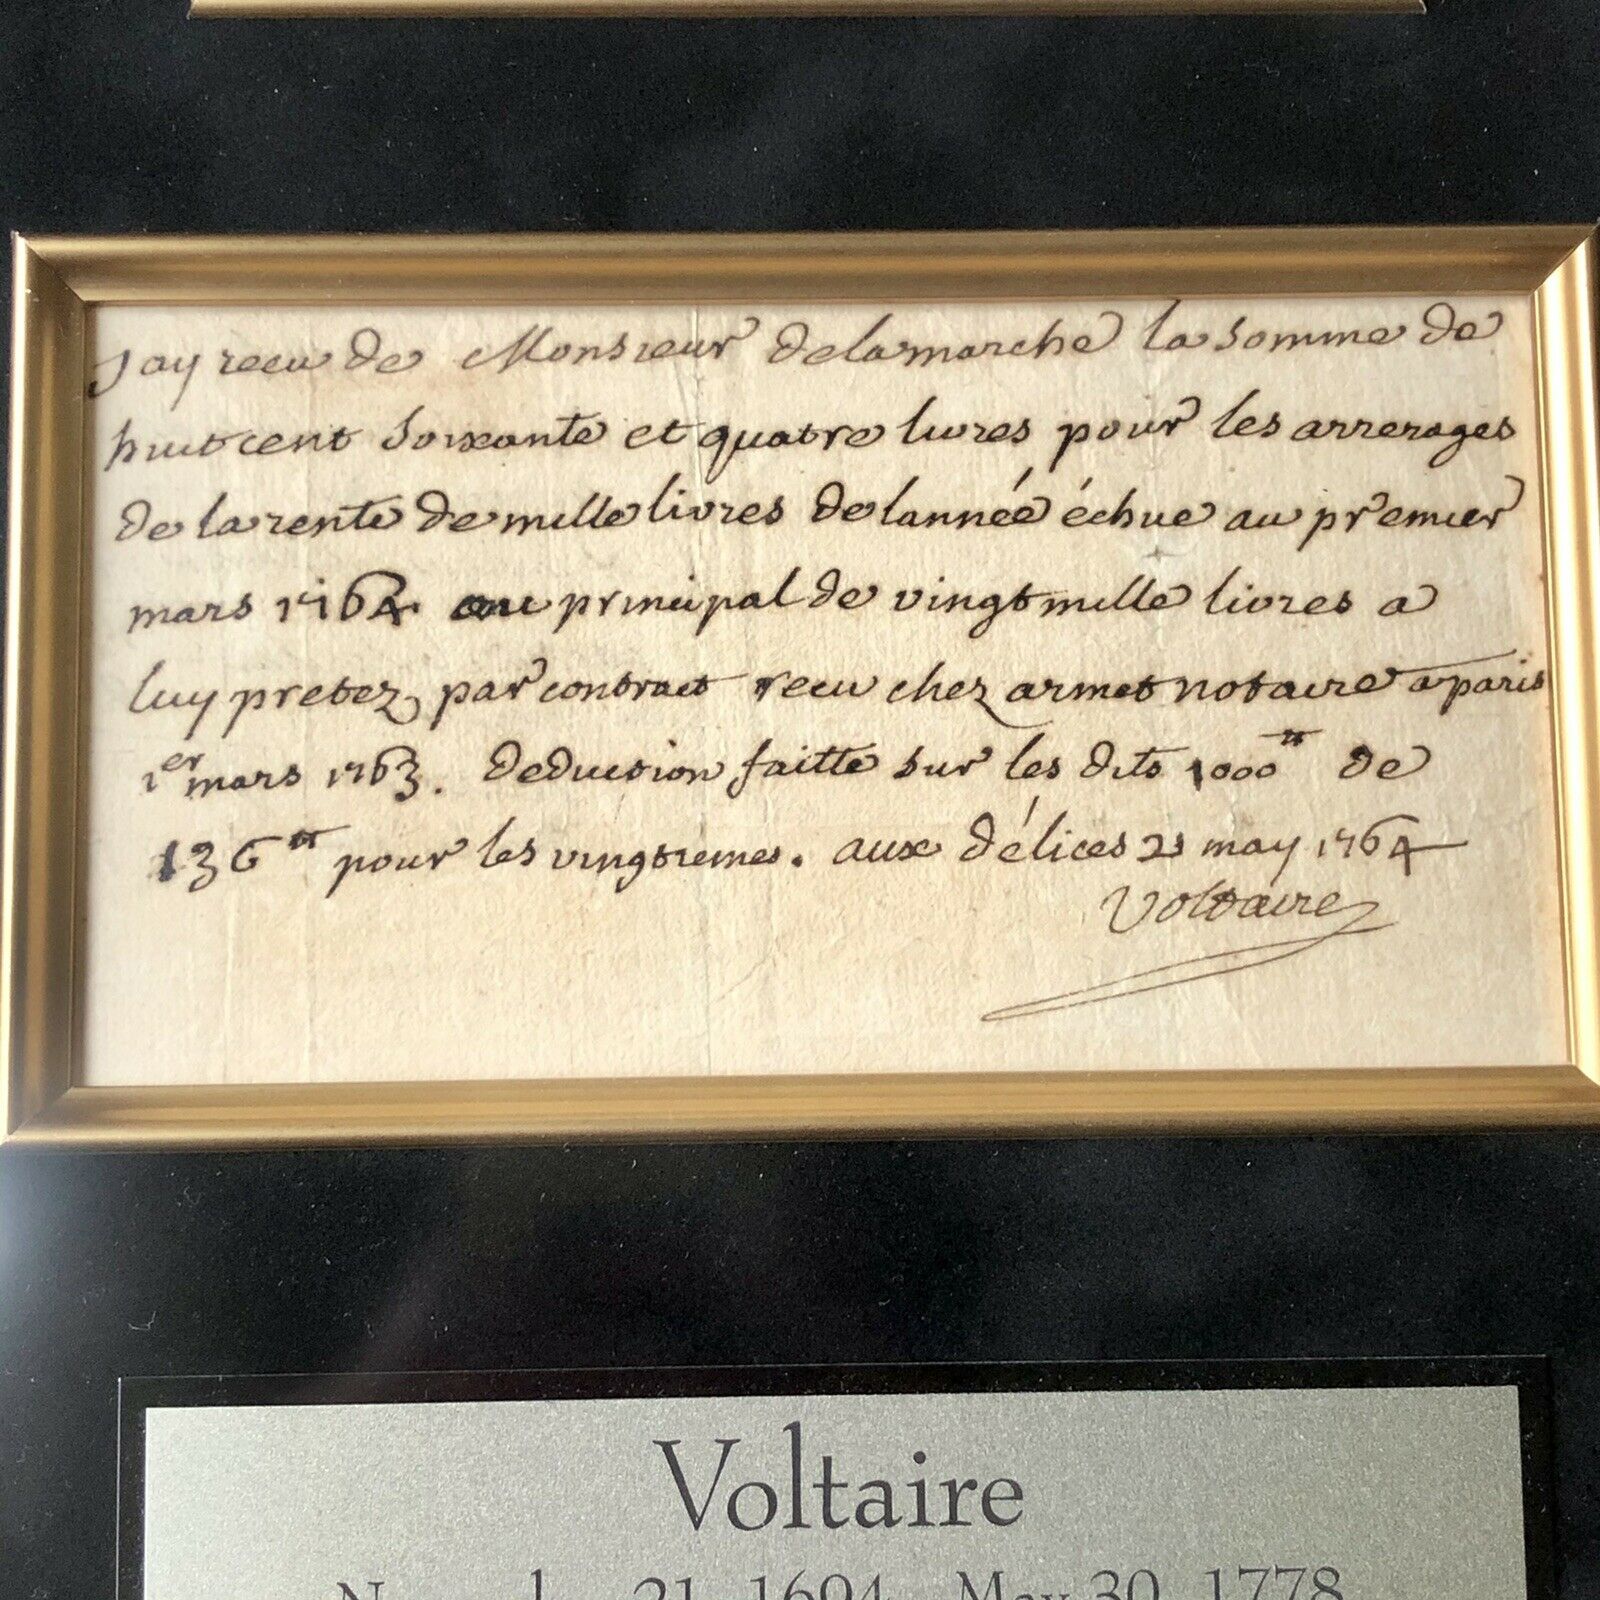 Jay recu de Monsieur delamarche la somme de
huit cent soixante et quatre livres pour les arrerages
de la rente de mille livres de lannéé échue au premier
mars 1764. au principal de vingt mille livres a
luy pretez par contract recu chez armet notaire a paris
1er mars 1763. deduction faitte sur les dits 1000tt de
136tt pour les vingtiemes. aux délices 21 may 1764
Voltaire
Voltaire
November 21, 1694 - May 30, 1778